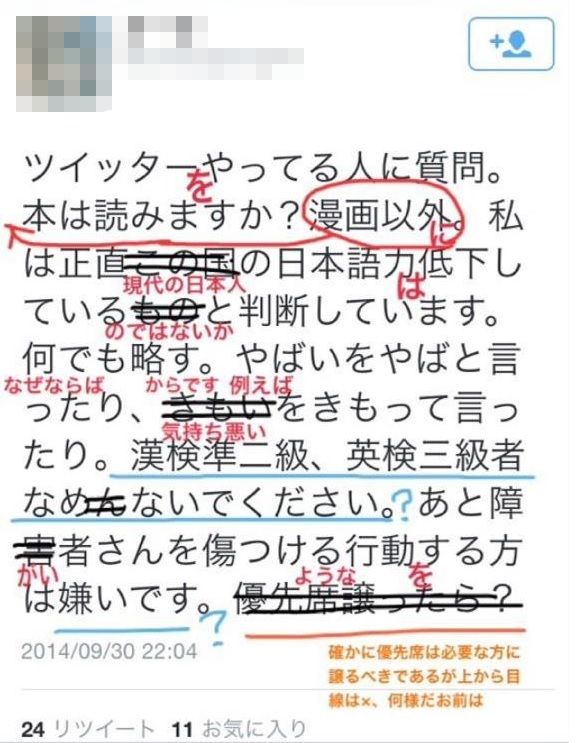 ツイッターやってる人に質問。
を
本は読みますか？漫画以外。私
に
は正直この国の日本語力低下し
現代の日本人
は
ているものと判断しています。
のではないか
何でも略す。やばいをやばと言
なぜならば
からです 例えば
ったり、きもいをきもって言っ
気持ち悪い
たり。漢検準二級、英検三級者
なめんないでください。？あと障
害者さんを傷つける行動する方
がい
ような
を
は嫌いです。優先席譲ったら？
？
2014/09/30 22:04
確かに優先席は必要な方に
譲るべきであるが上から目
線は×、何様だお前は
24 リツイート 11 お気に入り